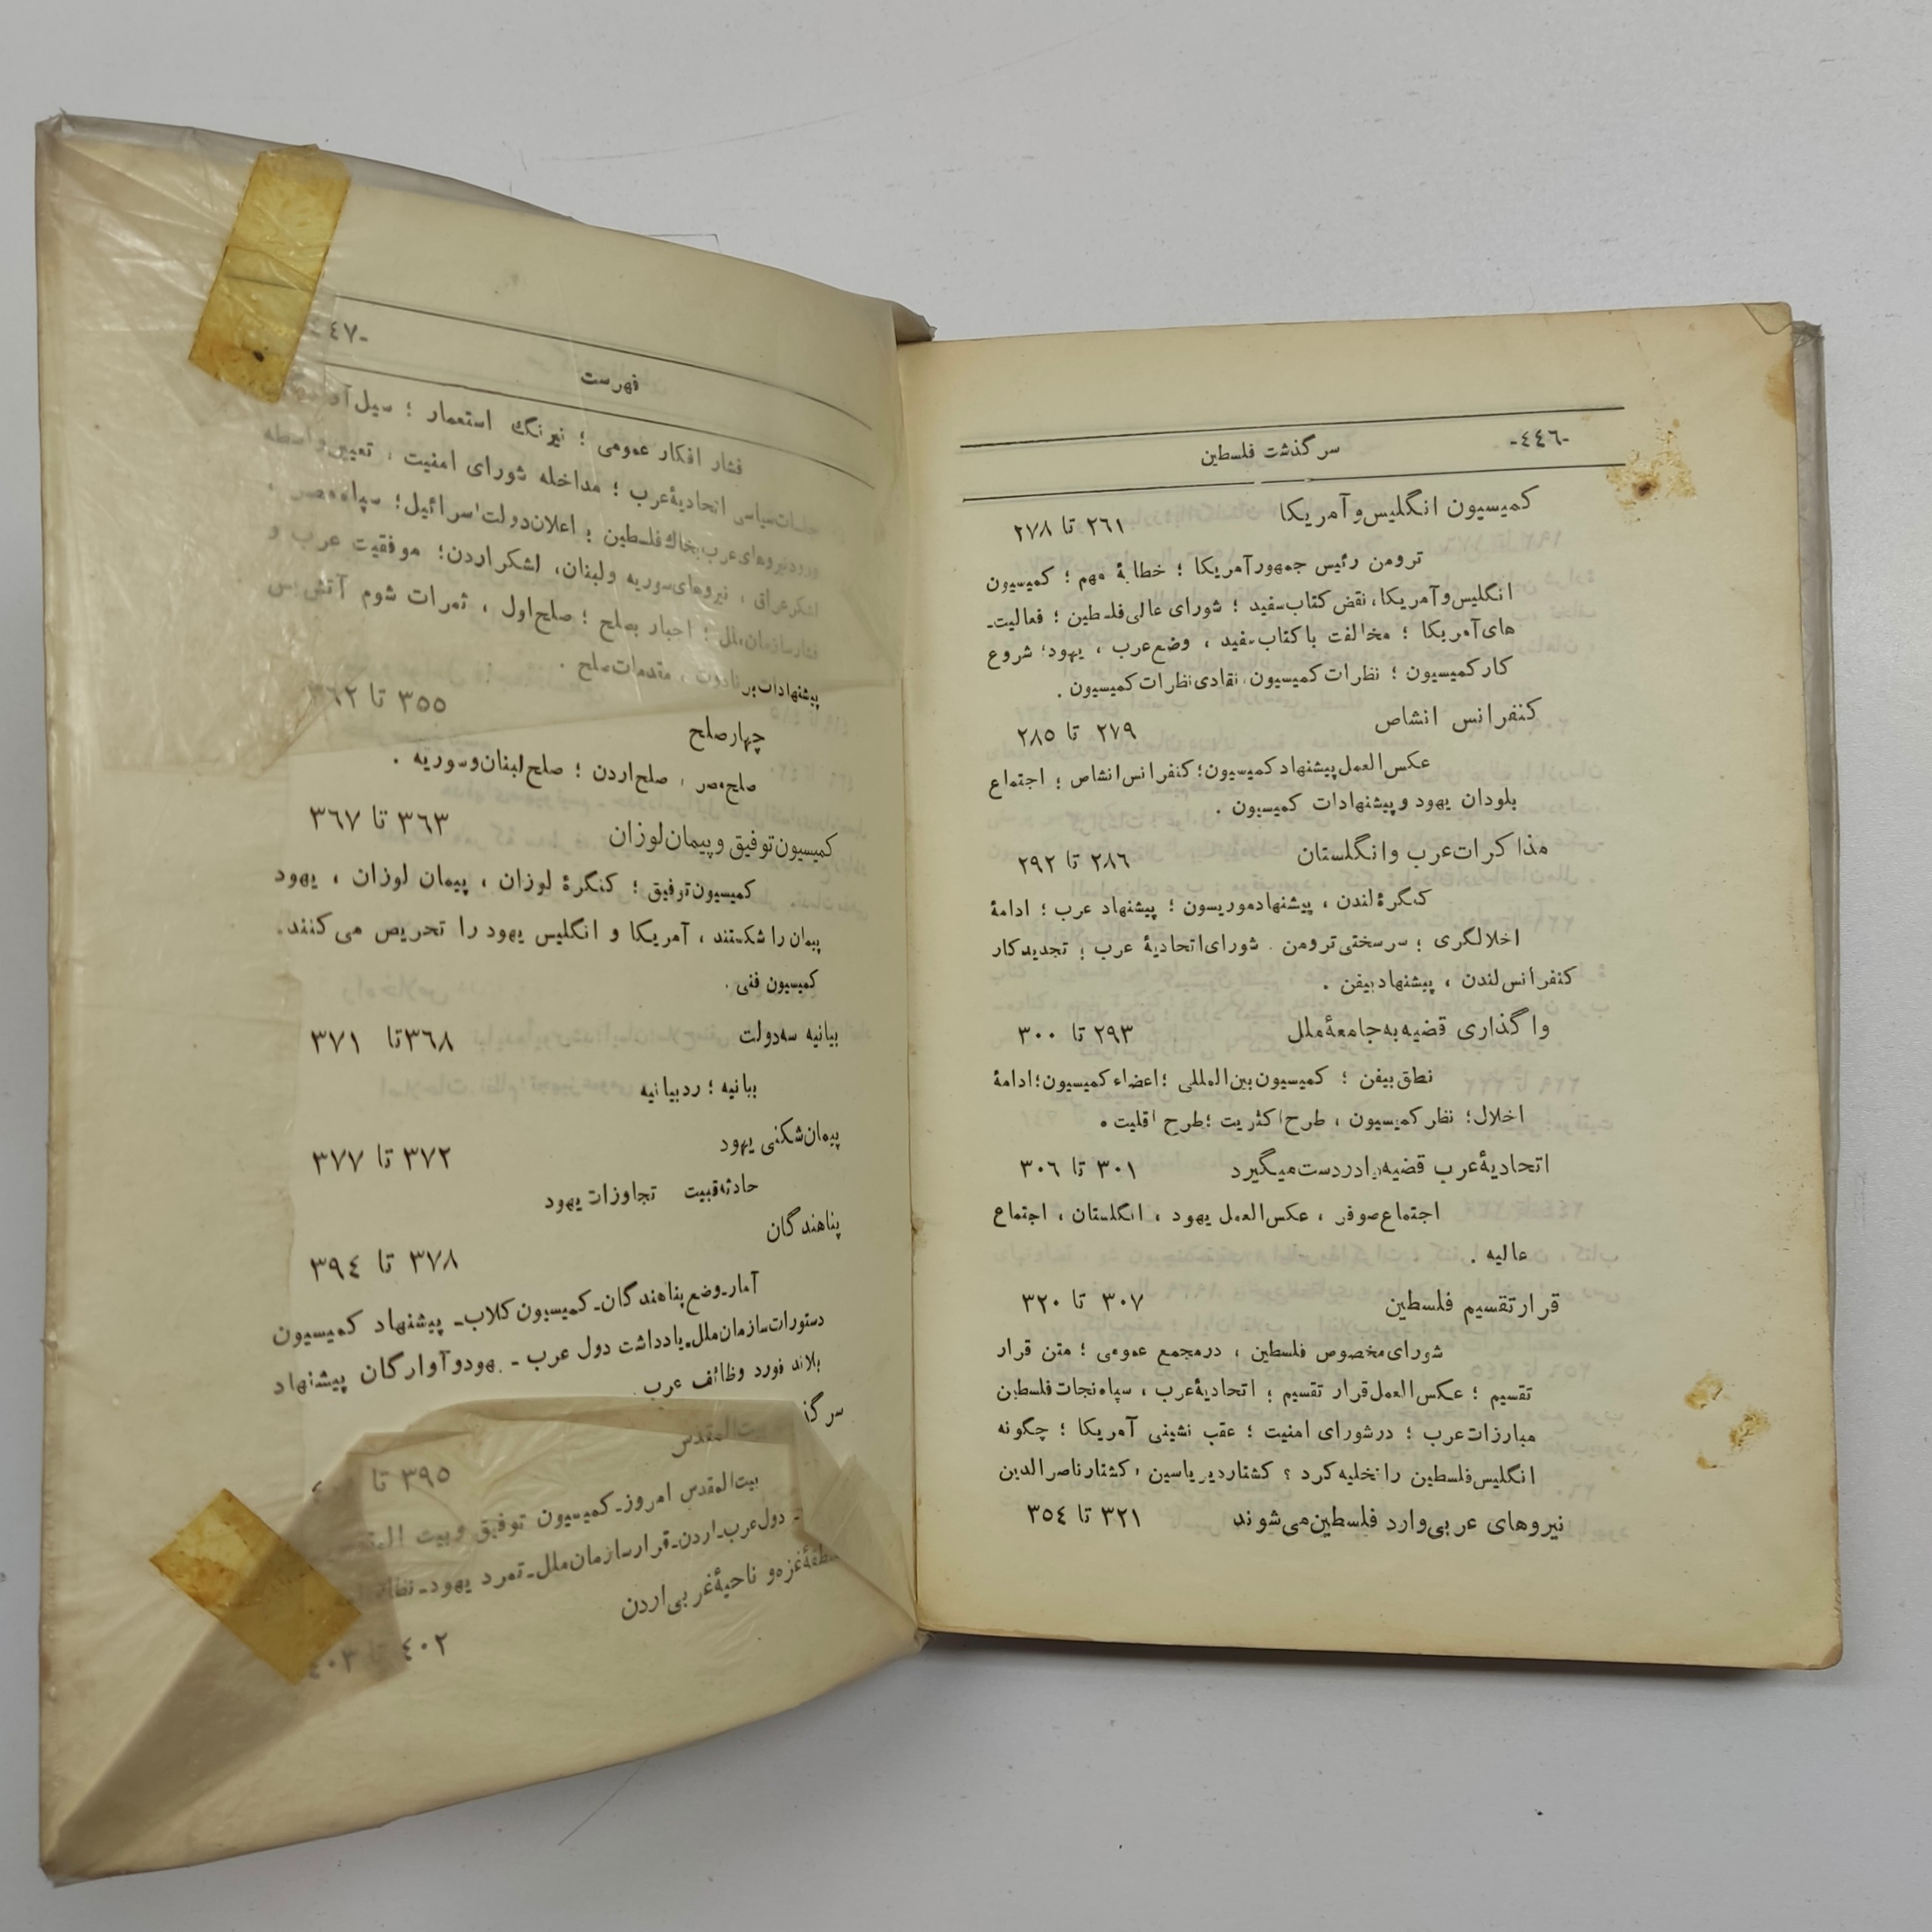 -٤٤٦-
سرگذشت فلسطین
کمیسیون انگلیس و آمریکا ٢٦١ تا ٢٧٨
ترومن رئیس جمهور آمریکا ؛ خطابهٔ مهم ؛ کمیسیون
انگلیس و آمریکا، نقض کتاب سفید ؛ شورای عالی فلسطین ؛ فعالیت-
های آمریکا ؛ مخالفت با کتاب سفید ، وضع عرب ، یهود؛ شروع
کار کمیسیون ؛ نظرات کمیسیون، نقادی نظرات کمیسیون .
کنفرانس انشاص ٢٧٩ تا ٢٨٥
عکس العمل پیشنهاد کمیسیون؛ کنفرانس انشاص ؛ اجتماع
بلودان یهود و پیشنهادات کمیسیون .
مذاکرات عرب و انگلستان ٢٨٦ تا ٢٩٢
کنگرهٔ لندن ، پیشنهاد موریسون ؛ پیشنهاد عرب ؛ ادامهٔ
اخلالگری ؛ سرسختی ترومن . شورای اتحادیهٔ عرب ؛ تجدید کار
کنفرانس لندن ، پیشنهاد بیفن .
واگذاری قضیه به جامعهٔ ملل ٢٩٣ تا ٣٠٠
نطق بیفن ؛ کمیسیون بین المللی ؛ اعضاء کمیسیون؛ ادامهٔ
اخلال؛ نظر کمیسیون ، طرح اکثریت ؛ طرح اقلیت .
اتحادیهٔ عرب قضیه را در دست میگیرد ٣٠١ تا ٣٠٦
اجتماع صوفر ، عکس العمل یهود ، انگلستان ، اجتماع
عالیه .
قرار تقسیم فلسطین ٣٠٧ تا ٣٢٠
شورای مخصوص فلسطین ، در مجمع عمومی ؛ متن قرار
تقسیم ؛ عکس العمل قرار تقسیم ؛ اتحادیهٔ عرب ، سپاه نجات فلسطین
مبارزات عرب ؛ در شورای امنیت ؛ عقب نشینی آمریکا ؛ چگونه
انگلیس فلسطین را تخلیه کرد ؟ کشتار دیر یاسین ، کشتار ناصرالدین
نیروهای عربی وارد فلسطین می شوند ٣٢١ تا ٣٥٤
-٤٤٧-
فهرست
فشار افکار عمومی ؛ نیرنگ استعمار ؛ سیل
جلسات سیاسی اتحادیهٔ عرب ؛ مداخله شورای امنیت ، تعیین واسطه
ورود نیروهای عرب بخاك فلسطین ؛ اعلان دولت اسرائیل؛ سپاه مصر ،
لشکر عراق ، نیروهای سوریه و لبنان، لشکر اردن؛ موفقیت عرب و
فشار سازمان ملل ؛ اجبار بصلح ؛ صلح اول ، ثمرات شوم آتش بس
پیشنهادات برنادوت ، مقدمات صلح .
چهار صلح ٣٥٥ تا ٣٦٢
صلح مصر ، صلح اردن ؛ صلح لبنان و سوریه .
کمیسیون توفیق و پیمان لوزان ٣٦٣ تا ٣٦٧
کمیسیون توفیق ؛ کنگرهٔ لوزان ، پیمان لوزان ، یهود
پیمان را شکستند ، آمریکا و انگلیس یهود را تحریص می کنند.
کمیسیون فنی .
بیانیه سه دولت ٣٦٨ تا ٣٧١
بیانیه ؛ رد بیانیه
پیمان شکنی یهود ٣٧٢ تا ٣٧٧
حادثه قبیت تجاوزات یهود
پناهندگان ٣٧٨ تا ٣٩٤
آمار- وضع پناهندگان- کمیسیون کلاب- پیشنهاد کمیسیون
دستورات سازمان ملل- یادداشت دول عرب - یهود و آوارگان پیشنهاد
بلاند فورد وظائف عرب .
بیت المقدس ٣٩٥ تا
بیت المقدس امروز- کمیسیون توفیق و بیت
- دول عرب- اردن- قرار سازمان ملل- تمرد یهود-
منطقهٔ غزه و ناحیهٔ غربی اردن
٤٠٢ تا ٤٠٣